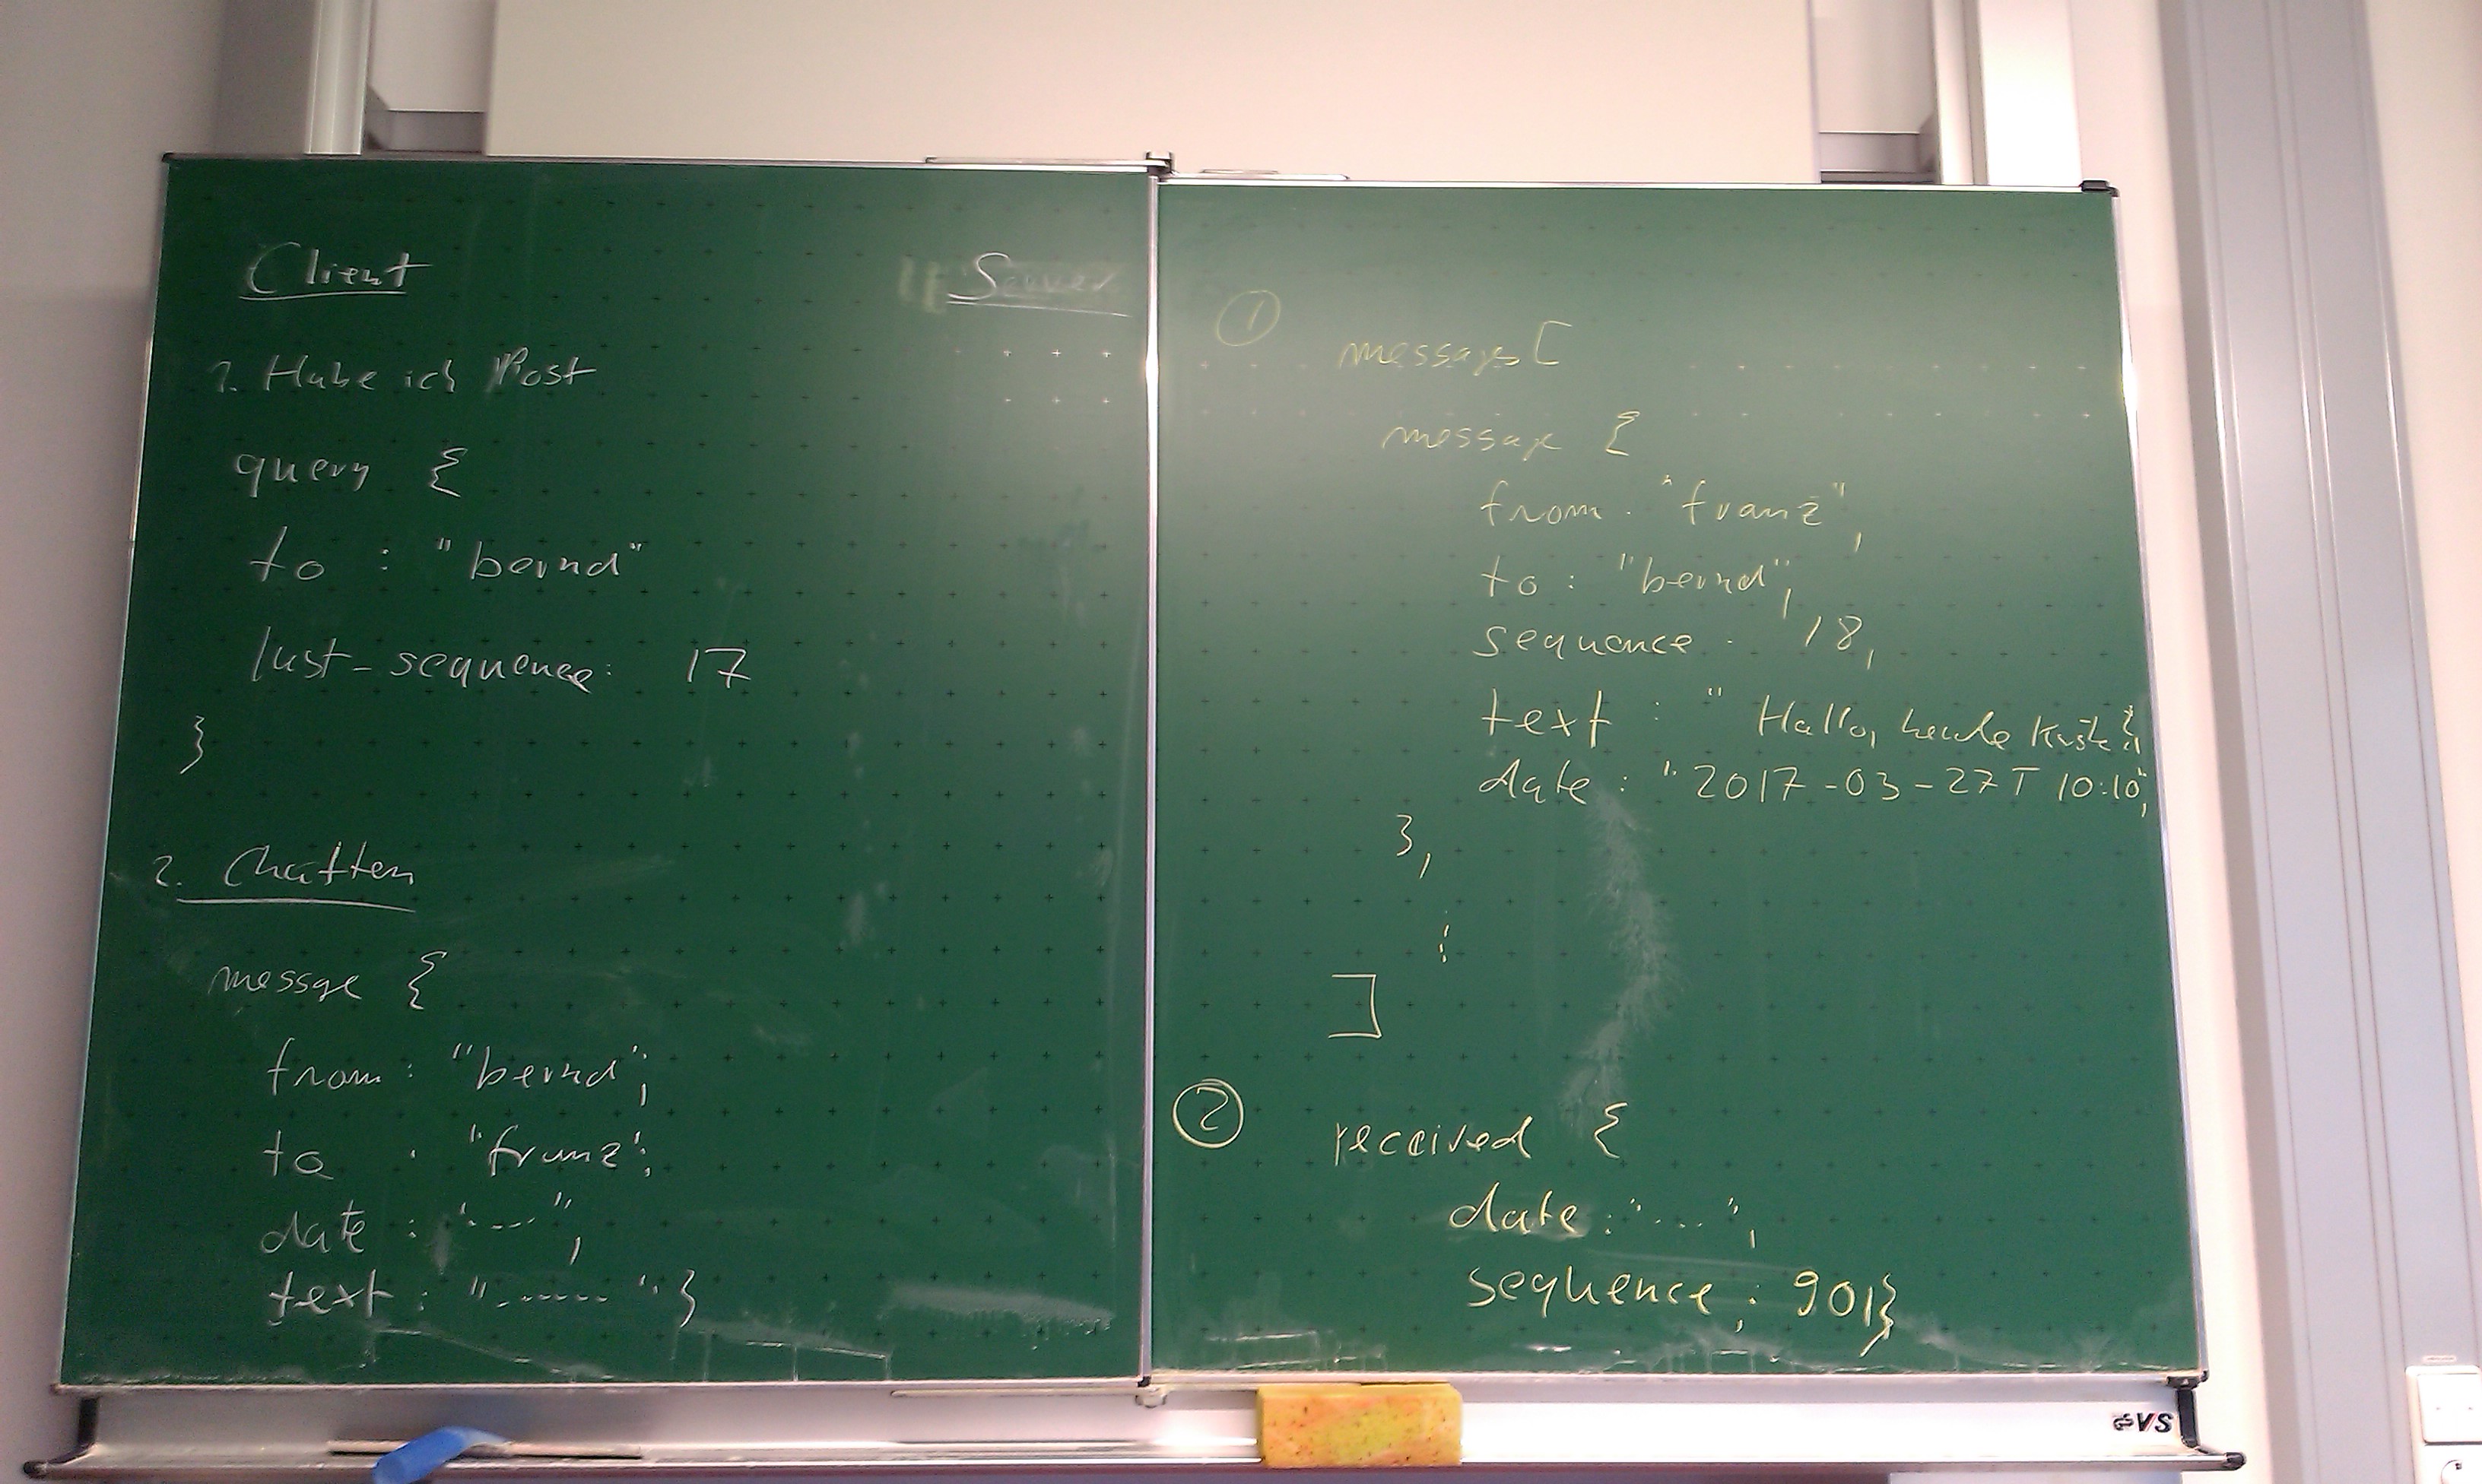 Client
Server
1. Habe ich Post
query {
to : "bernd"
last-sequence: 17
}
2. Chatten
messge {
from: "bernd",
to : "franz",
date : "---",
text : "------" }
1
messages [
message {
from : "franz",
to : "bernd",
sequence : 18,
text : " Hallo, heute
date : "2017-03-27T10:10",
},
:
]
2
received {
date : "---",
sequence : 901}
VS